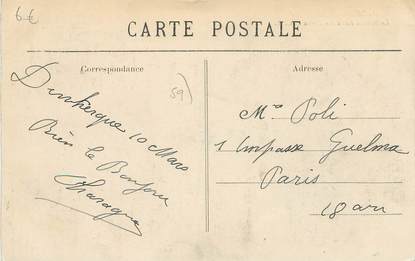 6€
CARTE POSTALE
Correspondance
Adresse
59
Dunkerque 10 Mars
Bien le Bonjour
Mr Poli
1 Impasse Guelma
Paris
18 arr